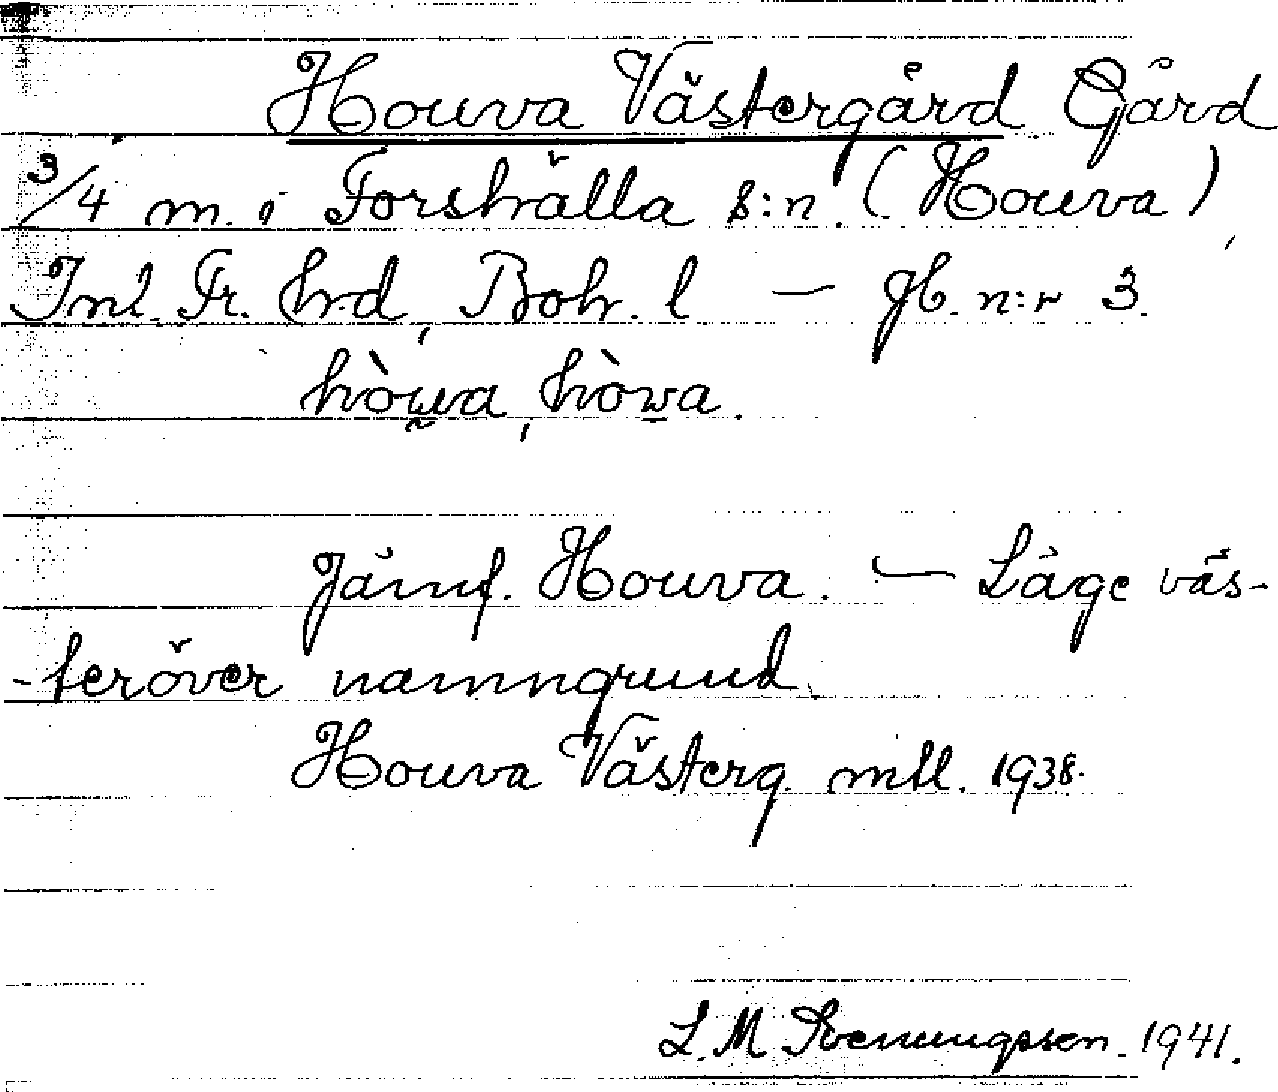 Houva Västergård Gård
3/4 m. i Forshälla s:n. (Houva),
Inl. Fr. hrd, Boh. l — jb. n:r 3.
hòu̯va, hòwa.
Jämf. Houva. — Läge väs-
-teröver namngrund.
Houva Västerg. mtl. 1938.
L. M. Svenungsson. 1941.